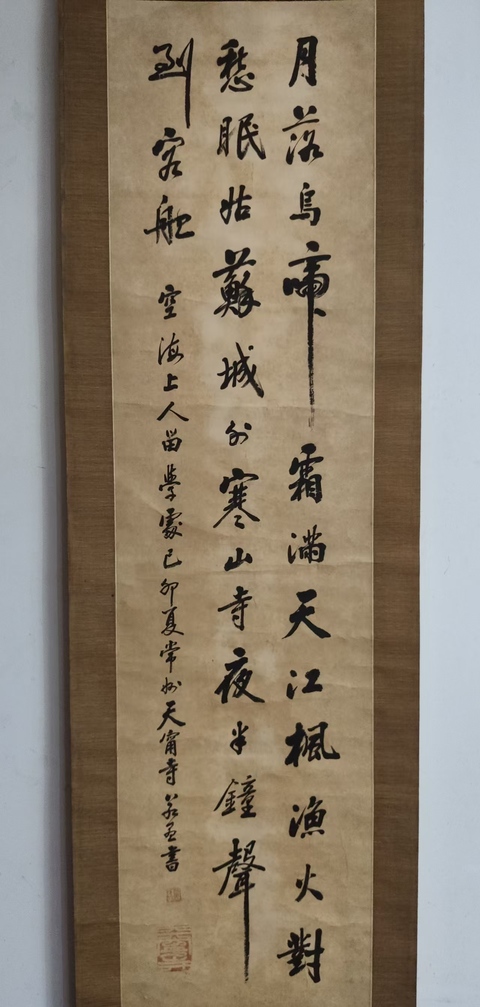 月落烏啼霜滿天江楓漁火對
愁眠姑蘇城外寒山寺夜半鐘聲
到客船
空海上人留學處己卯夏常州天甯寺書